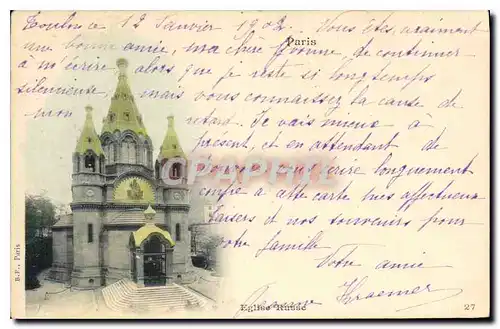 Toulouse 12 Janvier 1902. Vous êtes vraiment
Paris
une bonne amie, ma chère Yvonne de continuer
à m'écrire alors que je reste si longtemps
silencieuse, mais vous connaissez la cause de
mon retard. Je vais mieux à
présent, et en attendant de
vous écrire longuement
à cette carte mes affectueux
baisers et nos souvenirs pour
votre famille
Votre amie
Kraemer
B.F., Paris
Eglise Russe
27
CPARAMA